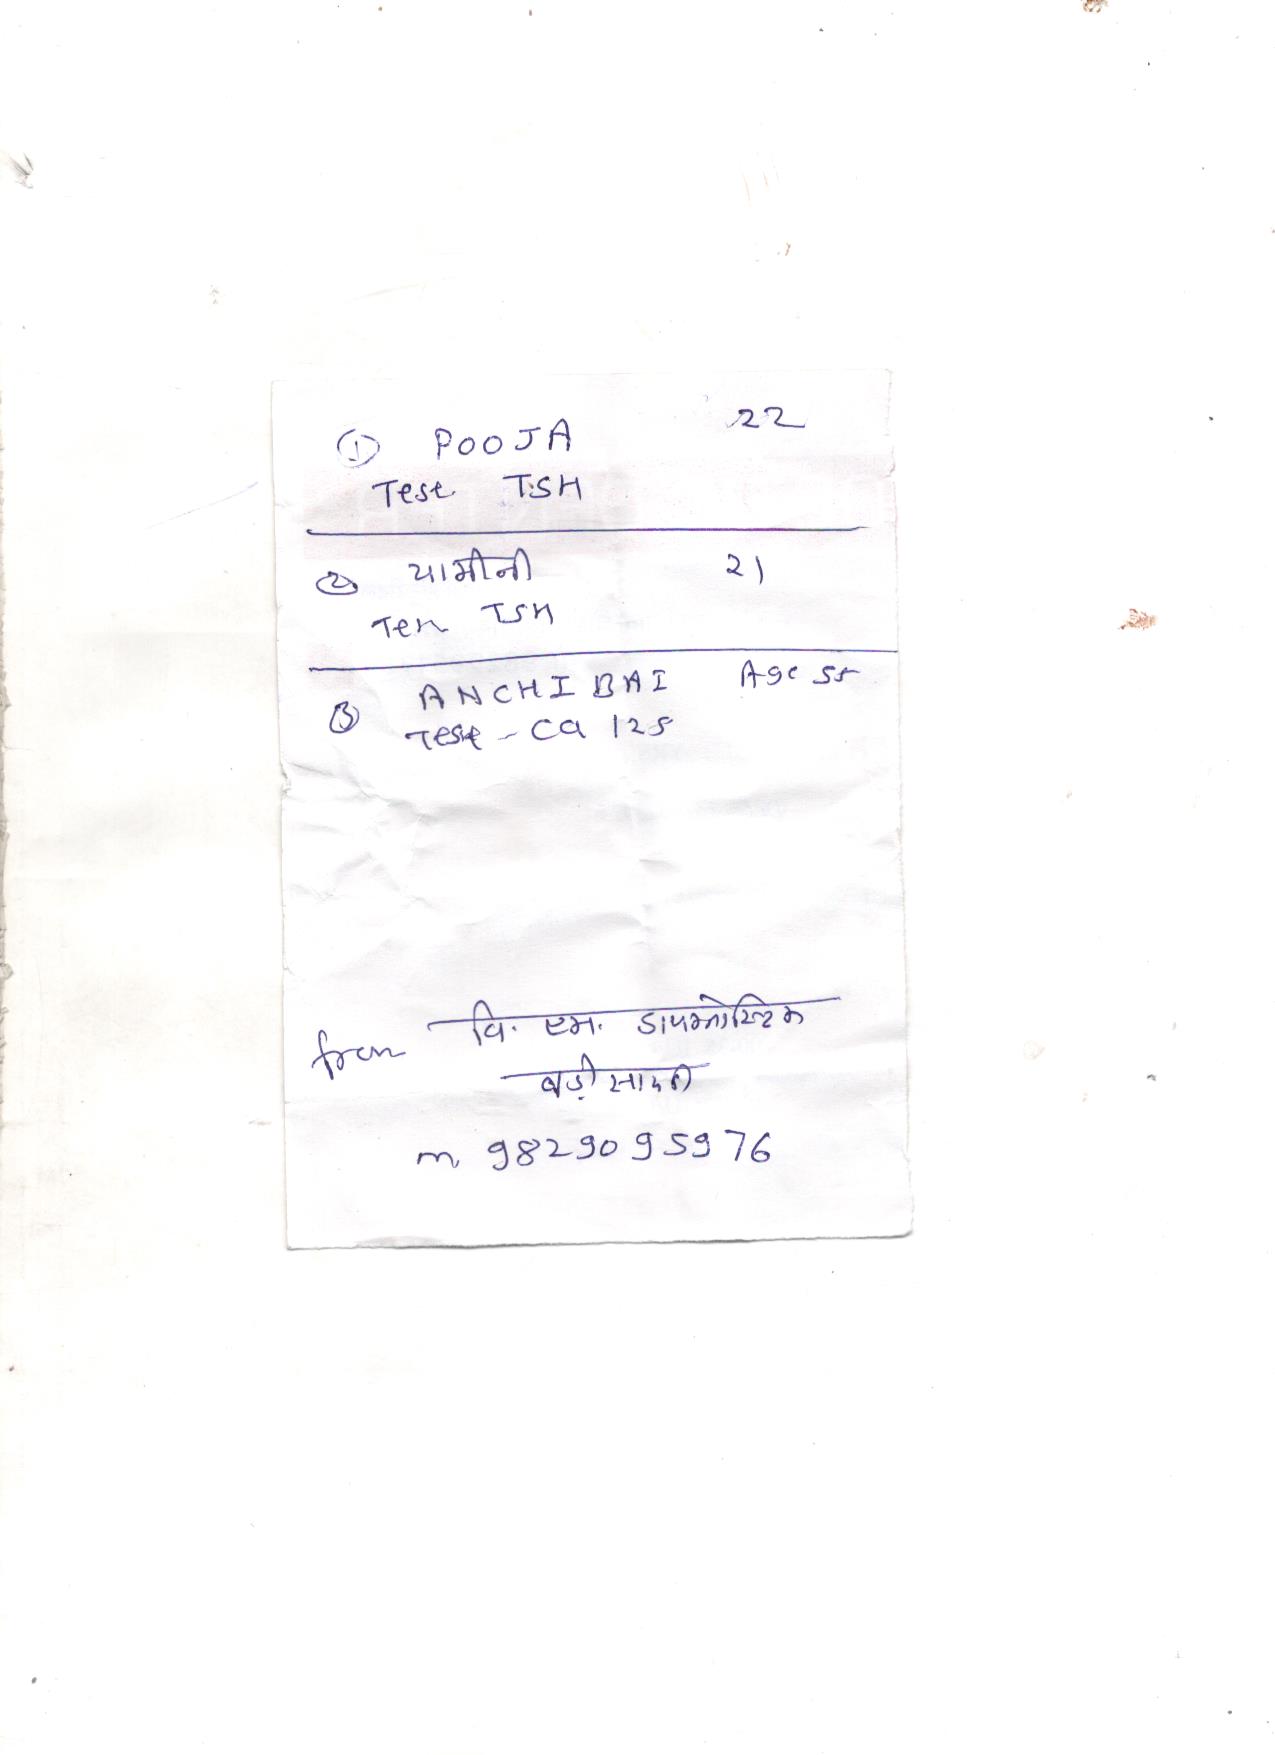 ① POOJA 22
Test TSH
② यामीनी 21
Test TSH
③ ANCHI BAI Age 55
Test - Ca 125
from वि. एम. डायग्नोस्टिक
बड़ी सादड़ी
m 9829095976